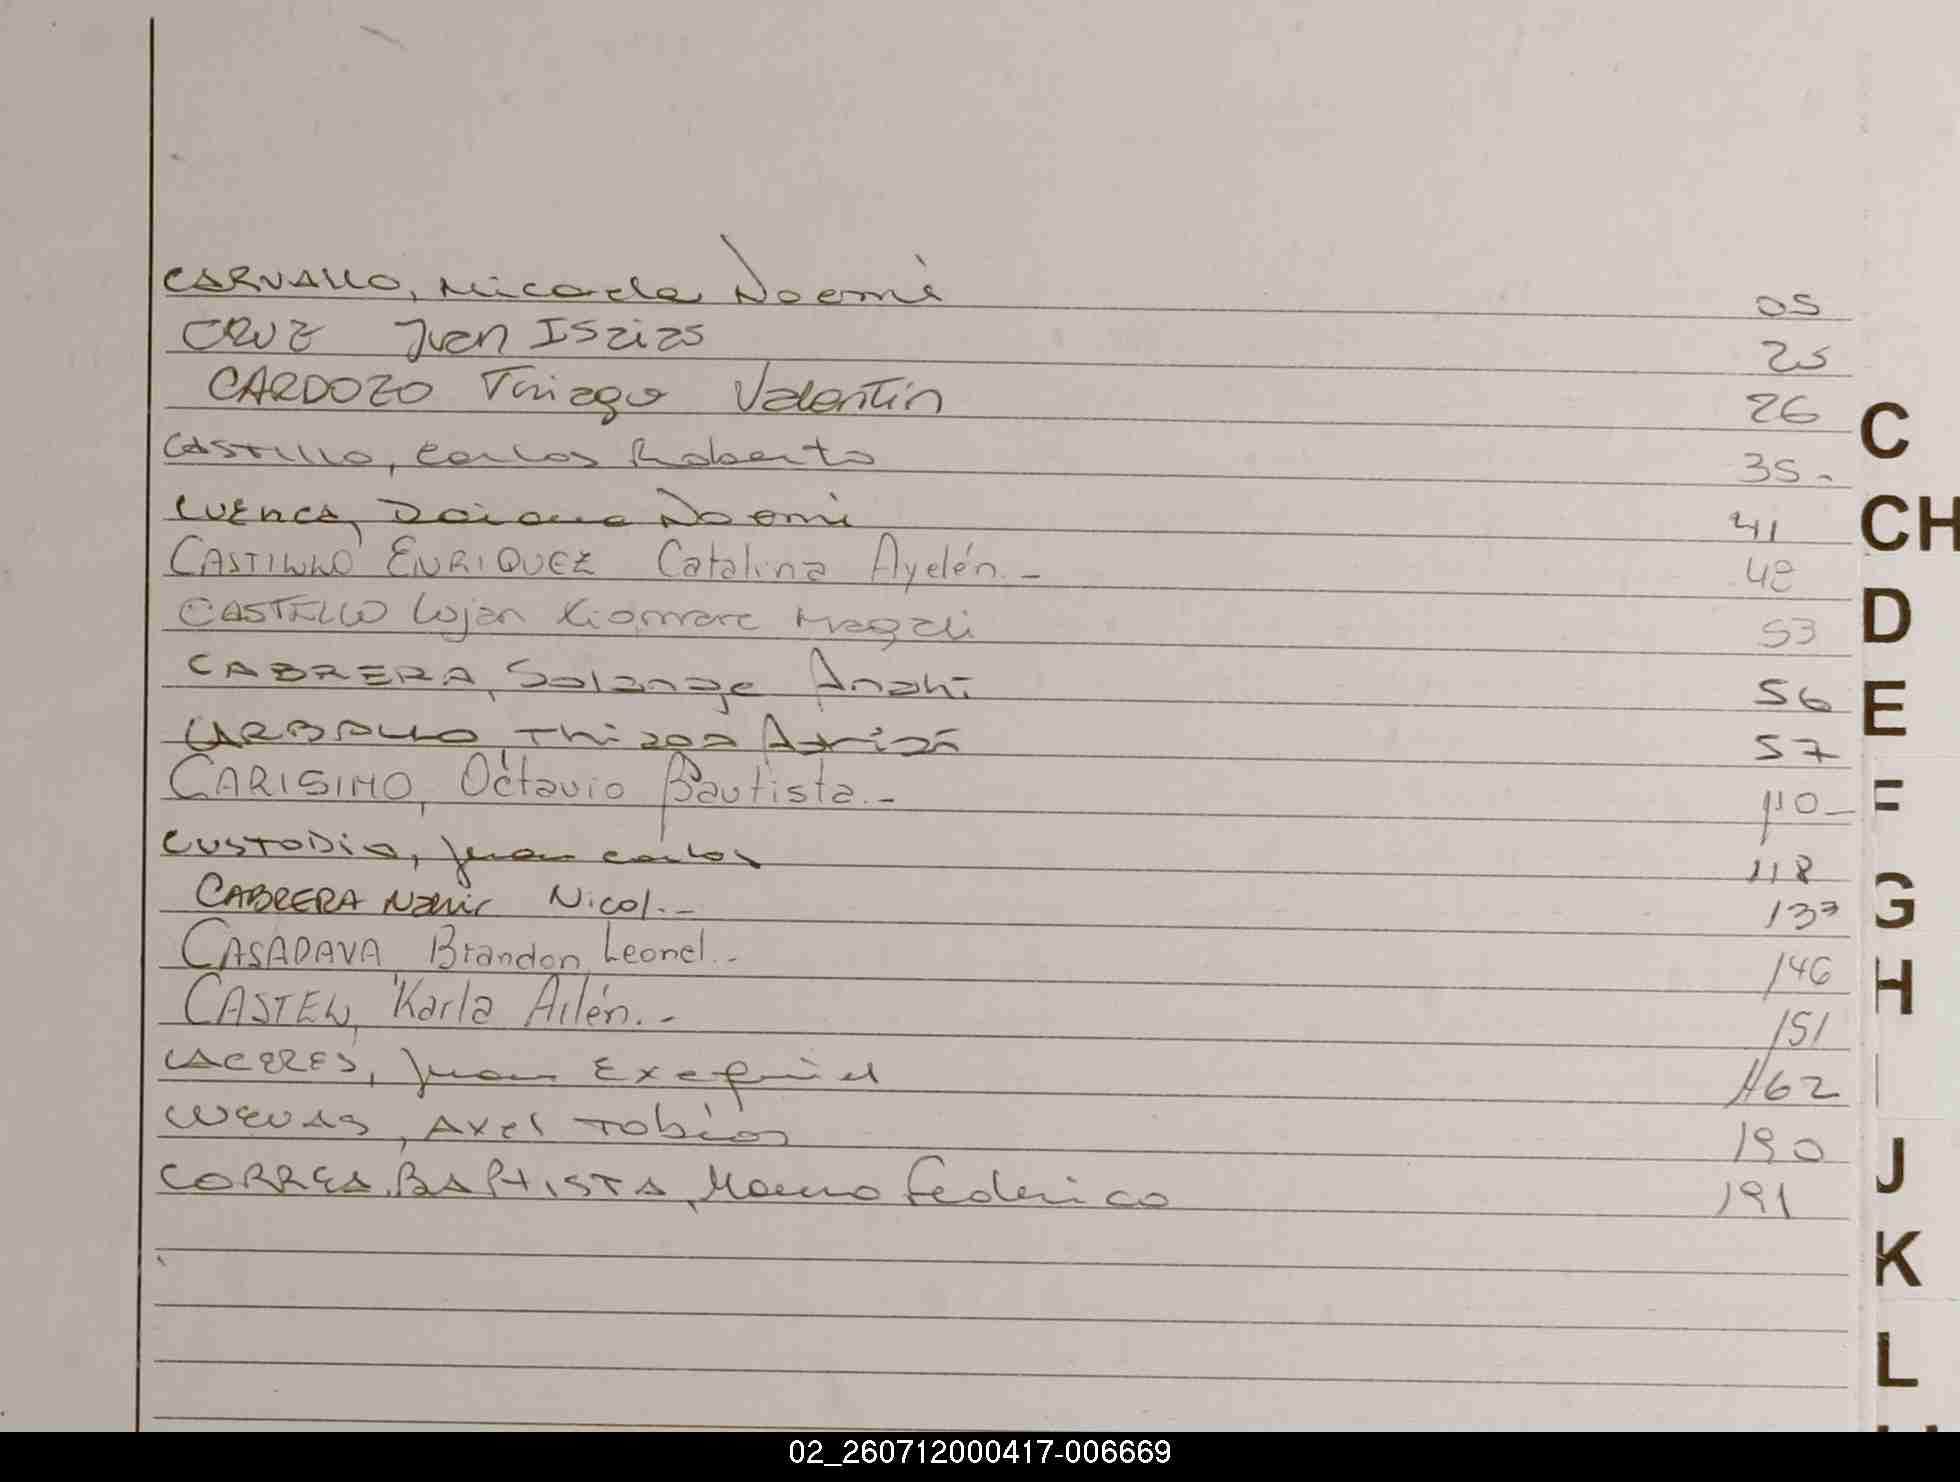 CARVALLO, Micaela Noemí 05
CRUZ Juan Isaias 25
CARDOZO Thiago Valentin 26
CASTILLO, Carlos Roberto 35-
CUENCA, Daiana Noemi 41
CASTILLLO ENRIQUEZ Catalina Ayelén.- 48
CASTELLO Lujan Xiomara Magali 53
CABRERA, Solange Anahi 56
CARBALLO, Thiago 57
CARISIMO, Octavio Bautista.- 110-
CUSTODIO, Juan Carlos 118
CABRERA Nahir Nicol.- 137
CASADAVA Brandon Leonel.- 146
CASTELL, Karla Ailén.- 151
CACERES, Juan Exequiel 162
CUEVAS, Axel Tobias 190
CORREA BAPTISTA, Mauro Federico 191
C
CH
D
E
F
G
H
I
J
K
L
02_260712000417-006669